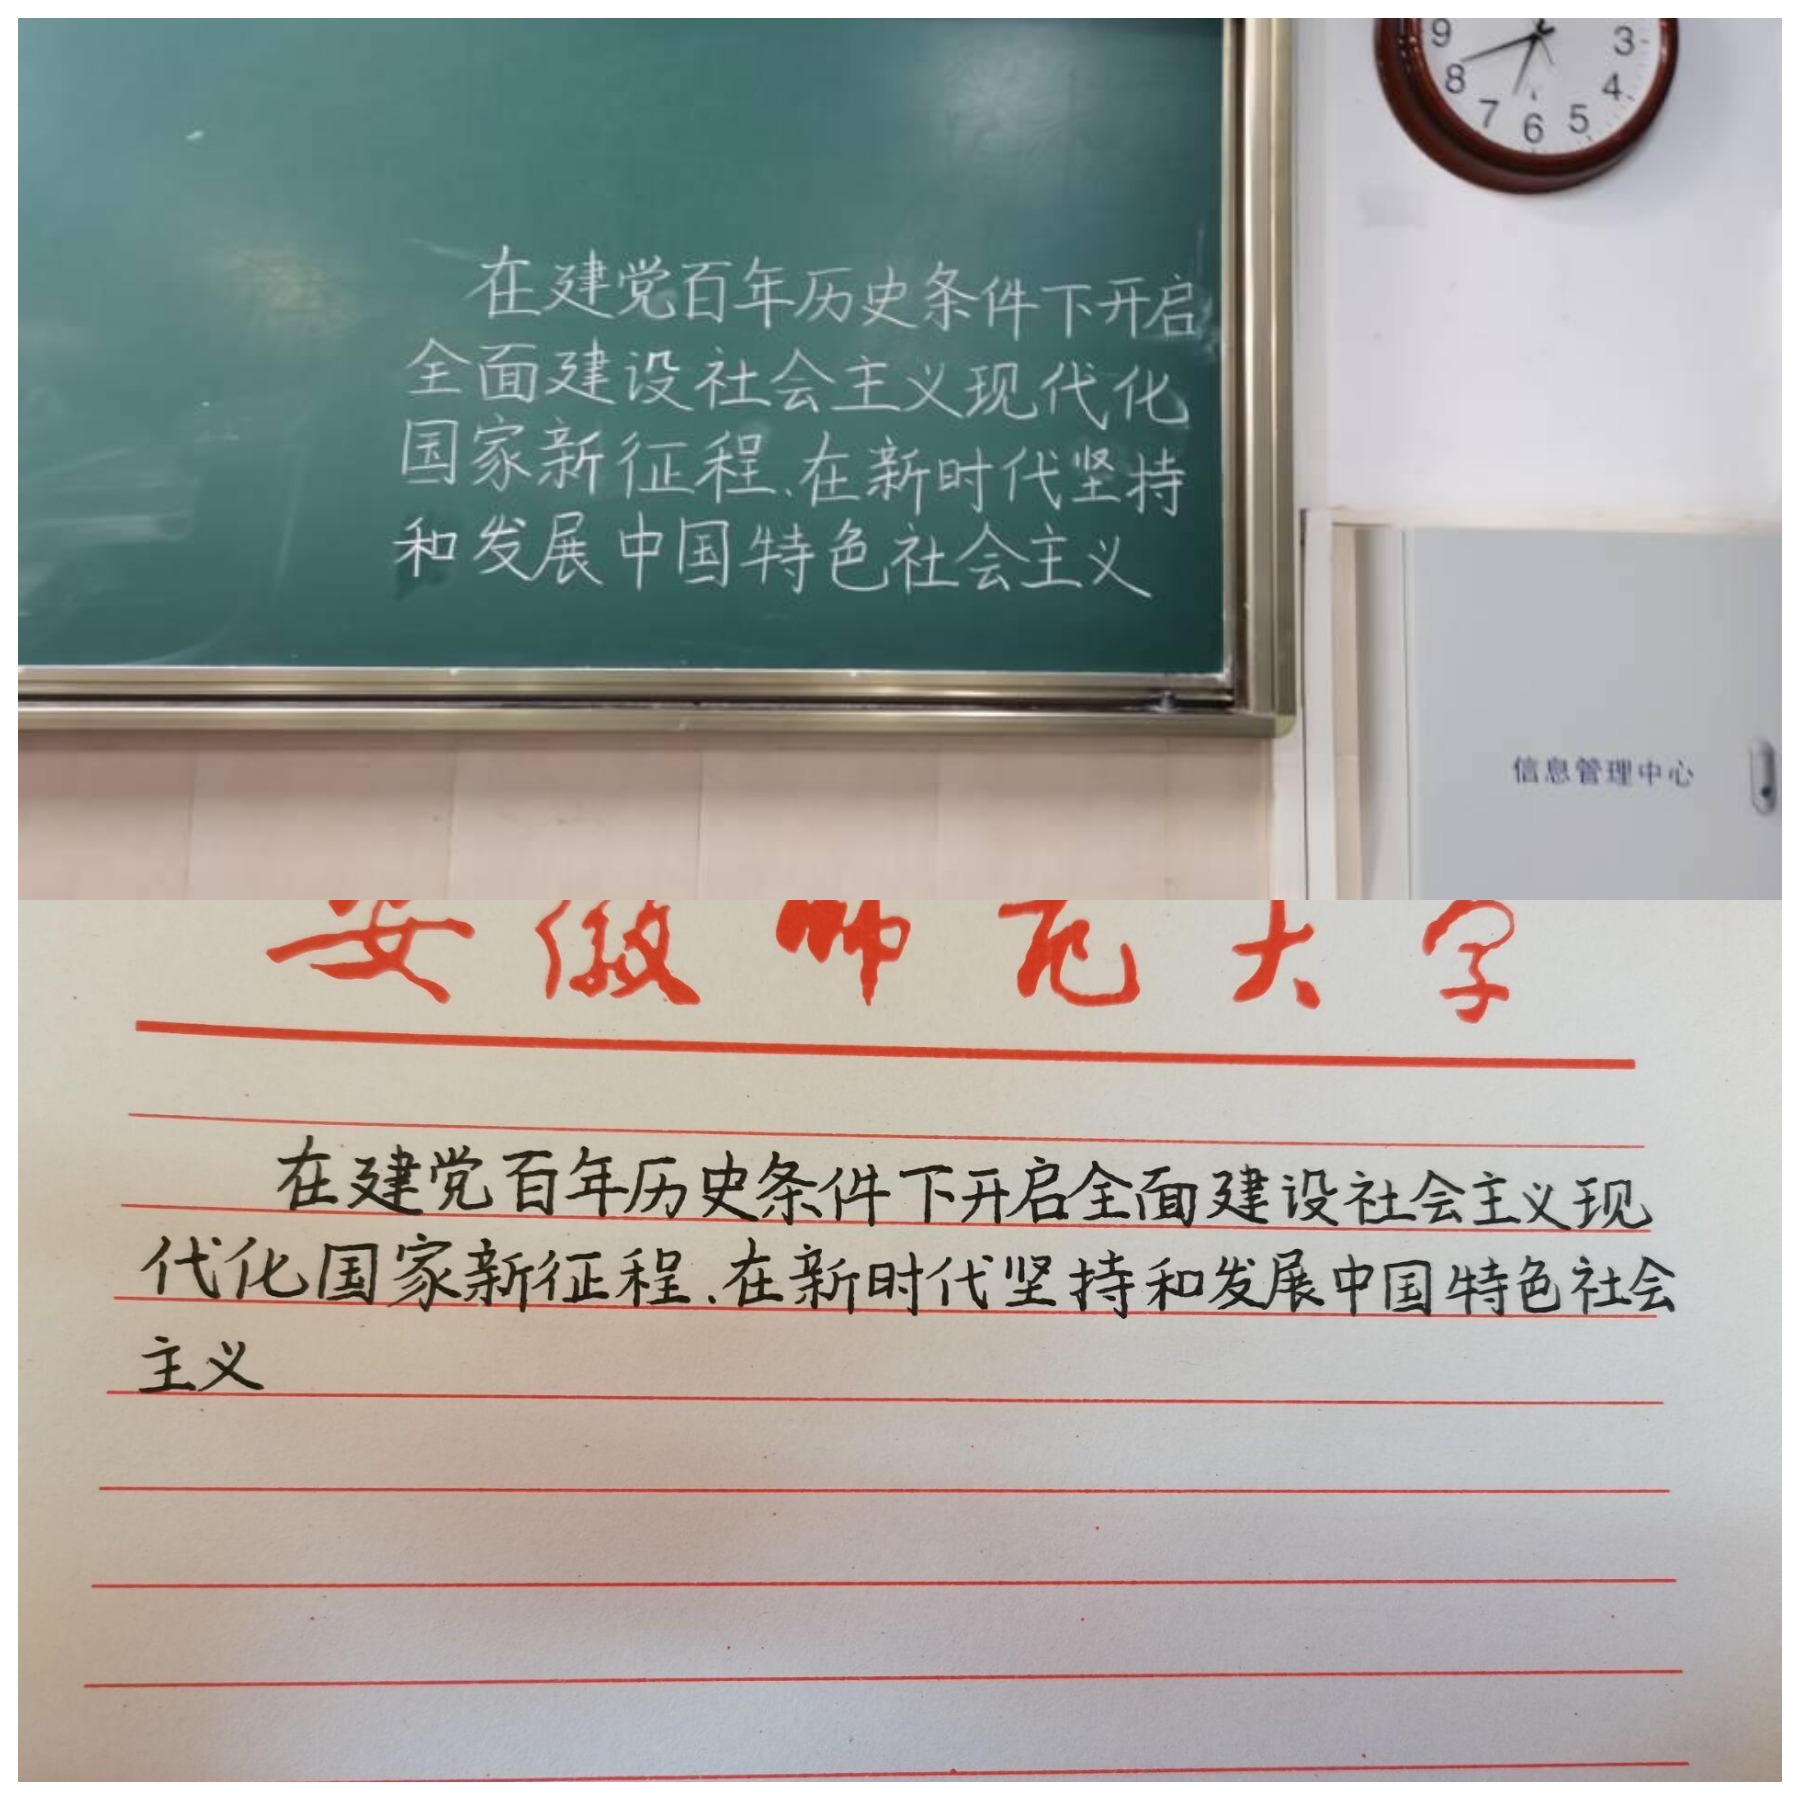 9
3
8
4
7
6
5
在建党百年历史条件下开启
全面建设社会主义现代化
国家新征程、在新时代坚持
和发展中国特色社会主义
信息管理中心
安徽师范大学
在建党百年历史条件下开启全面建设社会主义现
代化国家新征程、在新时代坚持和发展中国特色社会
主义